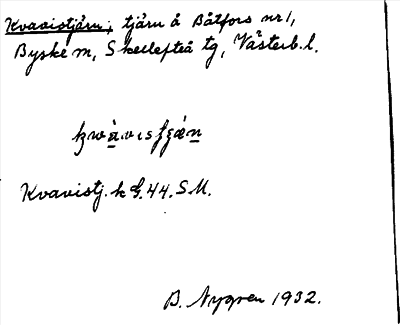 Kvavistjärn; tjärn å Båtfors nr 1,
Byske m, Skellefteå tg, Västerb. l.
Kvavistj. k G. 44. S M.
B. Nygren 1932.